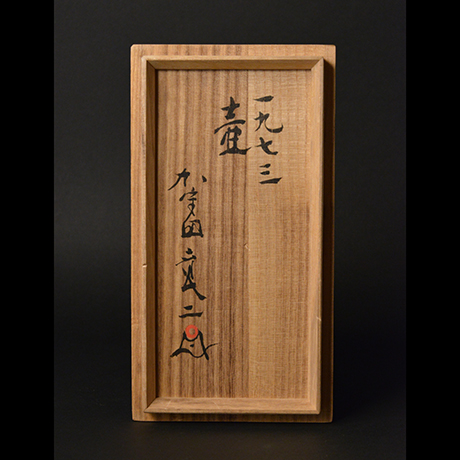 一九七三
壺
加守田章二